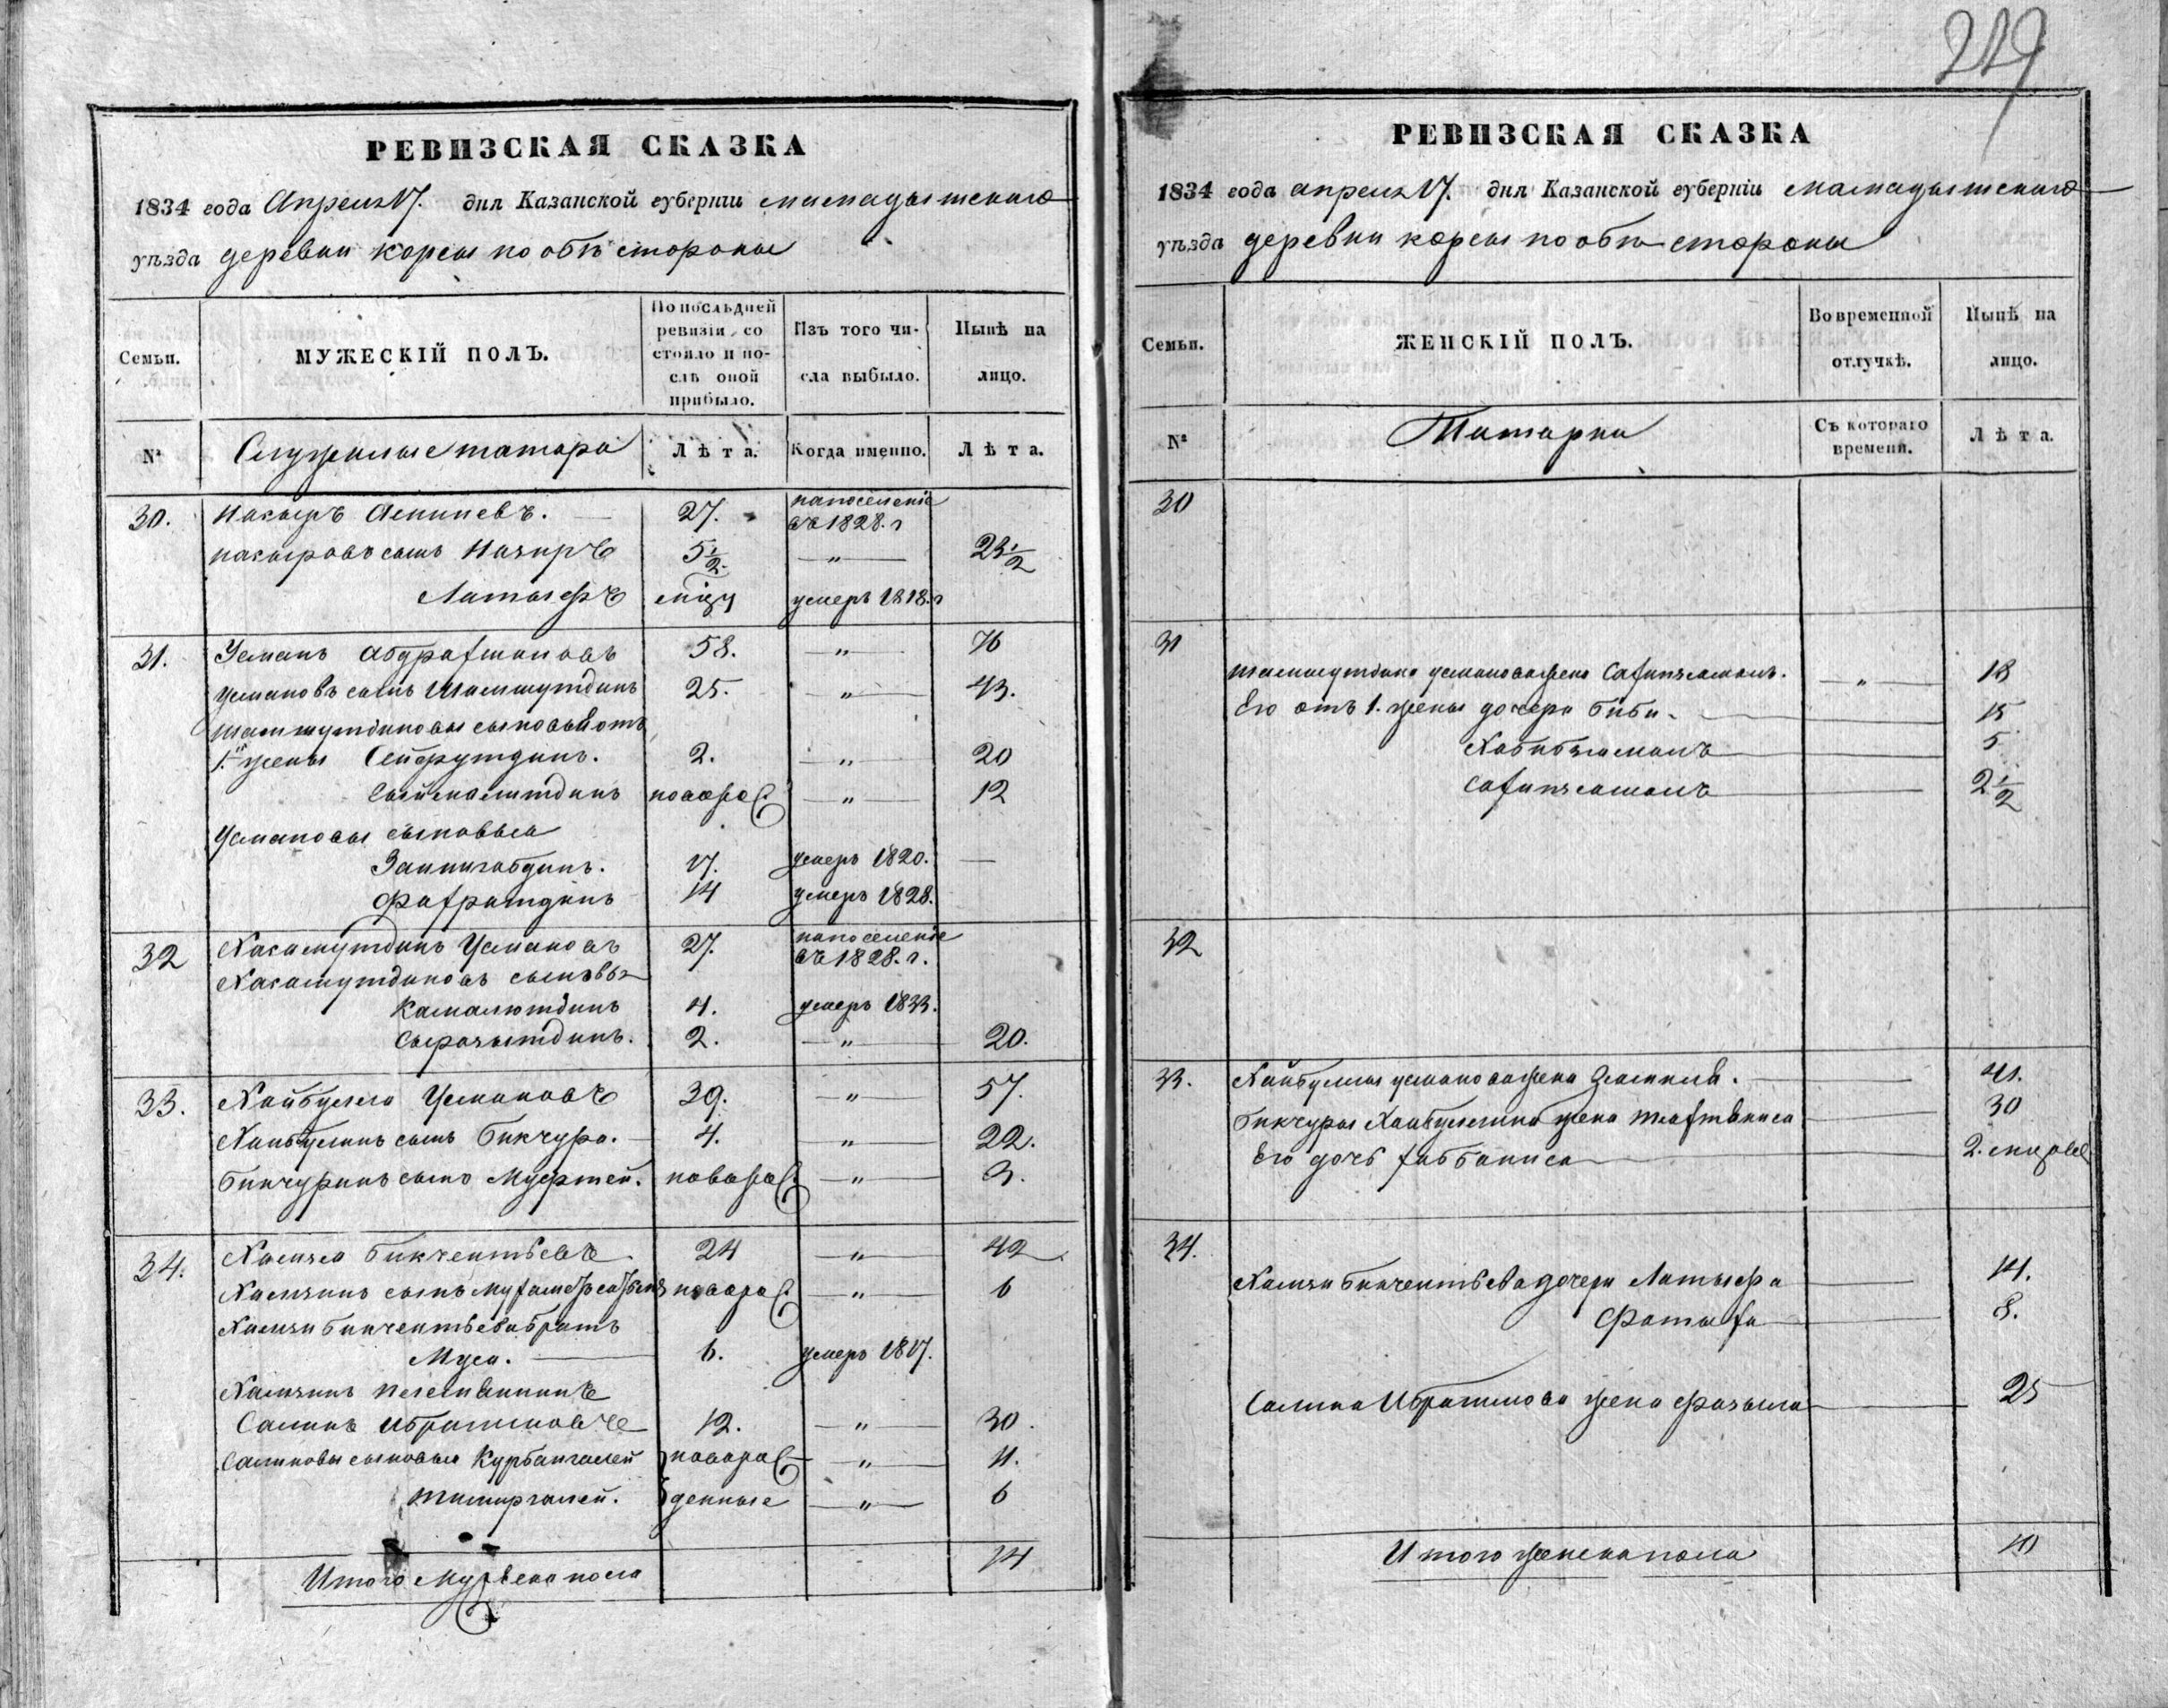 229
РЕВИЗСКАЯ СКАЗКА
1834 года Апреля 17. дня Казанской губерніи мамадышскаго
уѣзда деревни корсы по обѣ стороны
Семьи.
МУЖЕСКІЙ ПОЛЪ.
По послѣдней ревизіи состояло и послѣ оной прибыло.
Изъ того числа выбыло.
Нынѣ на лицо.
№
Служилые татара
Лѣта.
Когда именно.
Лѣта.
30. Насыръ 27. на поселеніе въ 1828. г
насыровъ сынъ Назиръ 5 1/2 — " — 23 1/2
Латыфъ умеръ 1818. г
31. Усманъ 58. — " — 76
Усмановъ сынъ Шамшутдинъ 25. — " — 43.
Шамшутдиновы сыновья отъ
1й жены Сейфутдинъ. 2. — " — 20
новорож. — " — 12
Усмановы сыновья
Зайнигабдинъ. 17. умеръ 1820. —
14 умеръ 1828.
32 Хасамутдинъ Усмановъ 27. на поселеніе въ 1828. г.
Хасамутдиновъ сыновья
Камалютдинъ 4. умеръ 1833.
Сыразытдинъ. 2. — " — 20.
33. Хайбулла Усмановъ 39. — " — 57.
Хайбуллинъ сынъ Бикчура. 4. — " — 22.
Бикчуринъ сынъ Муфтей. новорож. — " — 3.
34. Хамза Бикчентѣевъ 24 — " — 42
Хамзинъ сынъ новорож. — " — 6
Хамзи Бикчентѣева братъ
Муса. 6. умеръ 1817.
Хамзинъ племянникъ
Салимъ Ибрагимовъ 12. — " — 30.
Салимовы сыновья Курбангалей новорож — " — 11.
Тимиргалей. денные — " — 6
Итого Мужеска пола 14
РЕВИЗСКАЯ СКАЗКА
1834 года апреля 17. дня Казанской губерніи мамадышскаго
уѣзда деревни корсы по обѣ стороны
Семьи.
ЖЕНСКІЙ ПОЛЪ.
Во временной отлучкѣ.
Нынѣ на лицо.
№
Татарки
Съ котораго времени.
Лѣта.
30
31
Шамшутдина усманова жена — " — 18
Его отъ 1. жены дочери Биби. 15
Хабибзямалъ 5
2 1/2
32
33. Хайбуллы усманова жена 41.
Бикчуры Хайбуллина жена 30
Его дочь Хаббаниса 2. мцовъ
34.
Хамзи Бикчентѣева дочери Латыфа 14.
8.
Салима Ибрагимова жена Фазыла 25
Итого женска пола 10